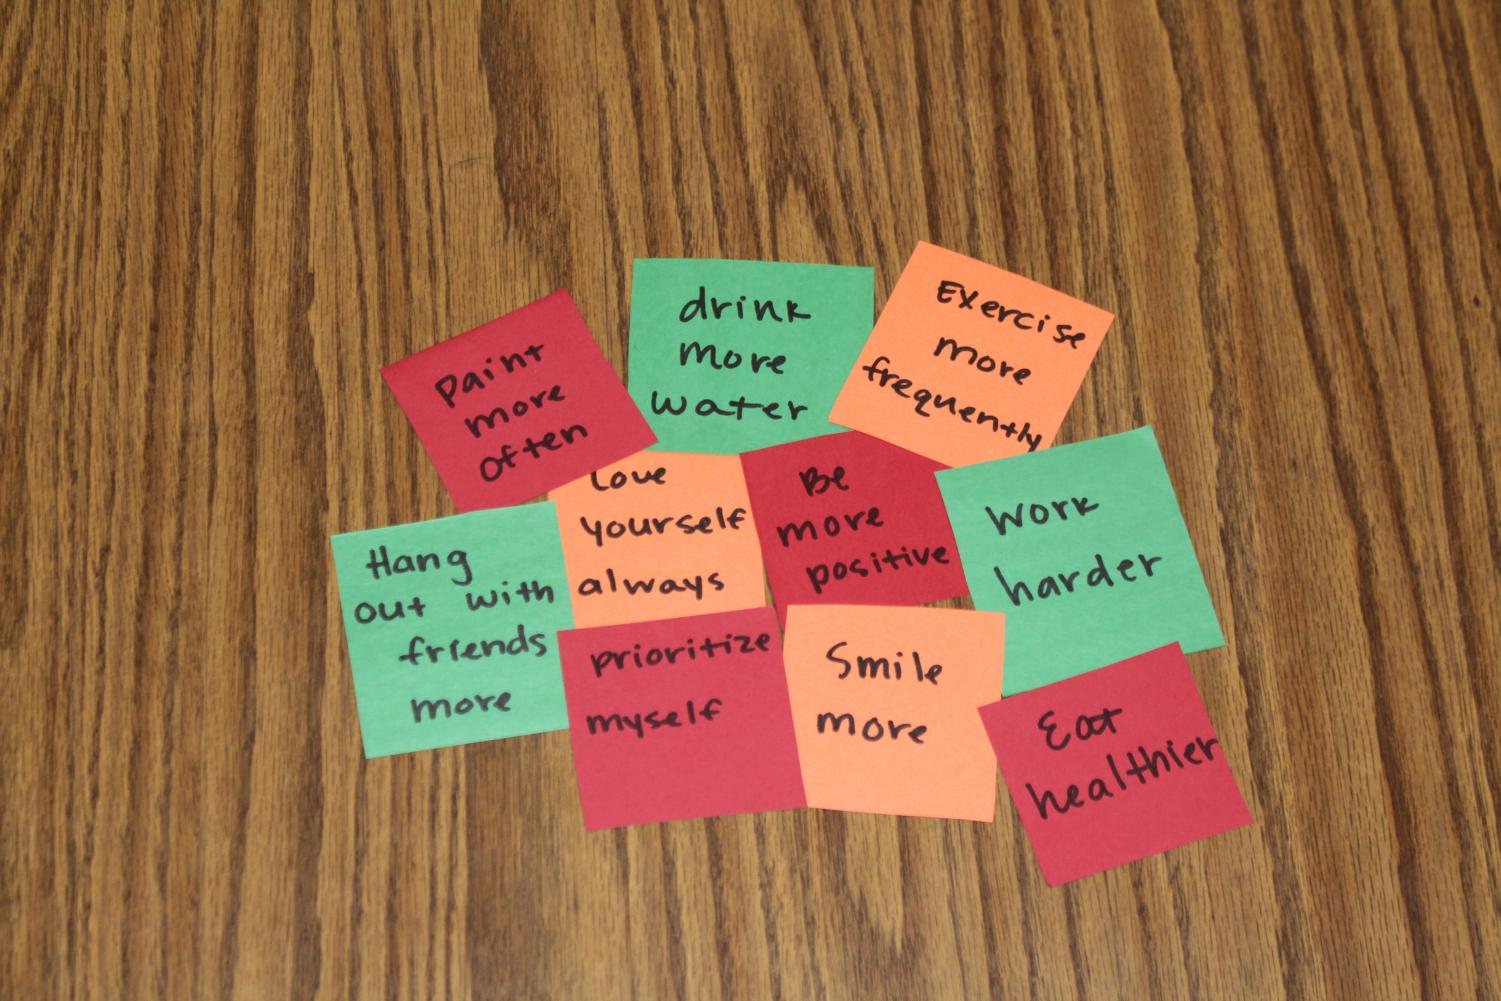 Paint
more
often
drink
more
water
Exercise
more
frequently
Hang
out with
friends
more
Love
yourself
always
Be
more
positive
Work
harder
prioritize
myself
Smile
more
Eat
healthier